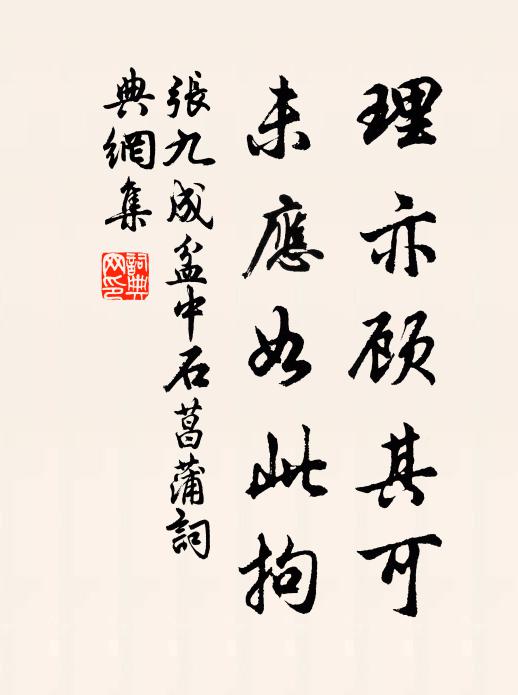 理亦顾其可
未應如此拘
張九成盆中石菖蒲詞
典網集
詞典网印